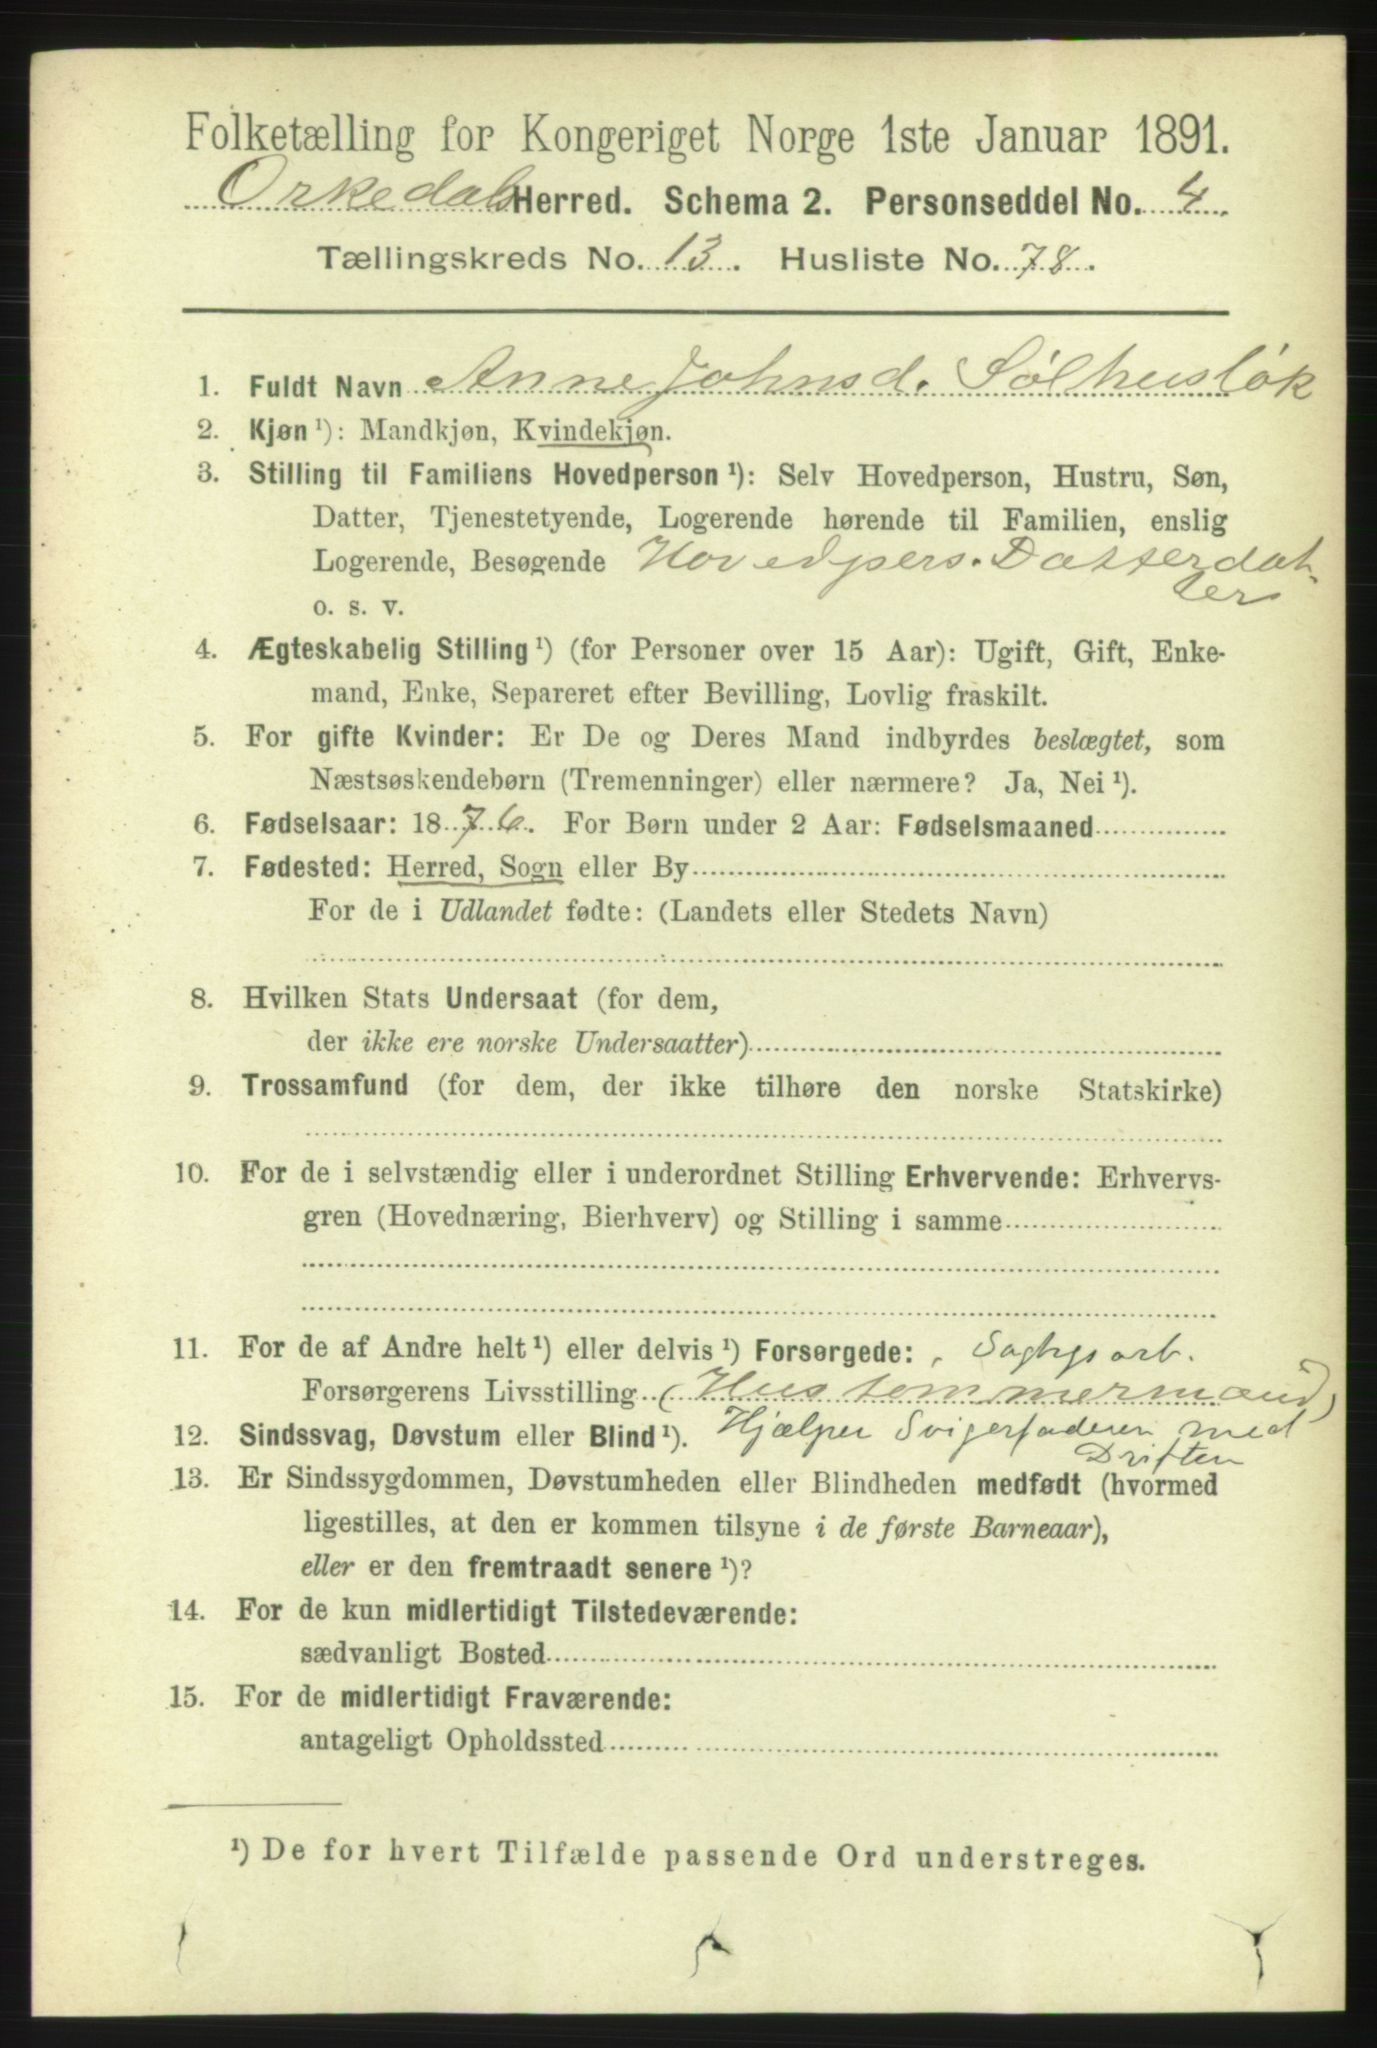 Folketælling for Kongeriget Norge 1ste Januar 1891.
Orkedals Herred. Schema 2. Personseddel No. 4.
Tællingskreds No. 13. Husliste No. 78.
1. Fuldt Navn Anne Johnsd. Sølhusløk
2. Kjøn ¹): Mandkjøn, Kvindekjøn.
3. Stilling til Familiens Hovedperson ¹): Selv Hovedperson, Hustru, Søn,
Datter, Tjenestetyende, Logerende hørende til Familien, enslig
Logerende, Besøgende Hovedpers. Datterdat-
ter
o. s. v.
4. Ægteskabelig Stilling ¹) (for Personer over 15 Aar): Ugift, Gift, Enke-
mand, Enke, Separeret efter Bevilling, Lovlig fraskilt.
5. For gifte Kvinder: Er De og Deres Mand indbyrdes beslægtet, som
Næstsøskendebørn (Tremenninger) eller nærmere? Ja, Nei ¹).
6. Fødselsaar: 1876. For Børn under 2 Aar: Fødselsmaaned
7. Fødested: Herred, Sogn eller By
For de i Udlandet fødte: (Landets eller Stedets Navn)
8. Hvilken Stats Undersaat (for dem,
der ikke ere norske Undersaatter)
9. Trossamfund (for dem, der ikke tilhøre den norske Statskirke)
10. For de i selvstændig eller i underordnet Stilling Erhvervende: Erhvervs-
gren (Hovednæring, Bierhverv) og Stilling i samme
11. For de af Andre helt ¹) eller delvis ¹) Forsørgede: , Sagbgsarb.
Forsørgerens Livsstilling (Hustommermand)
12. Sindssvag, Døvstum eller Blind ¹). Hjælper Svigerfaderen med
Driften
13. Er Sindssygdommen, Døvstumheden eller Blindheden medfødt (hvormed
ligestilles, at den er kommen tilsyne i de første Barneaar),
eller er den fremtraadt senere ¹)?
14. For de kun midlertidigt Tilstedeværende:
sædvanligt Bosted
15. For de midlertidigt Fraværende:
antageligt Opholdssted
¹) De for hvert Tilfælde passende Ord understreges.